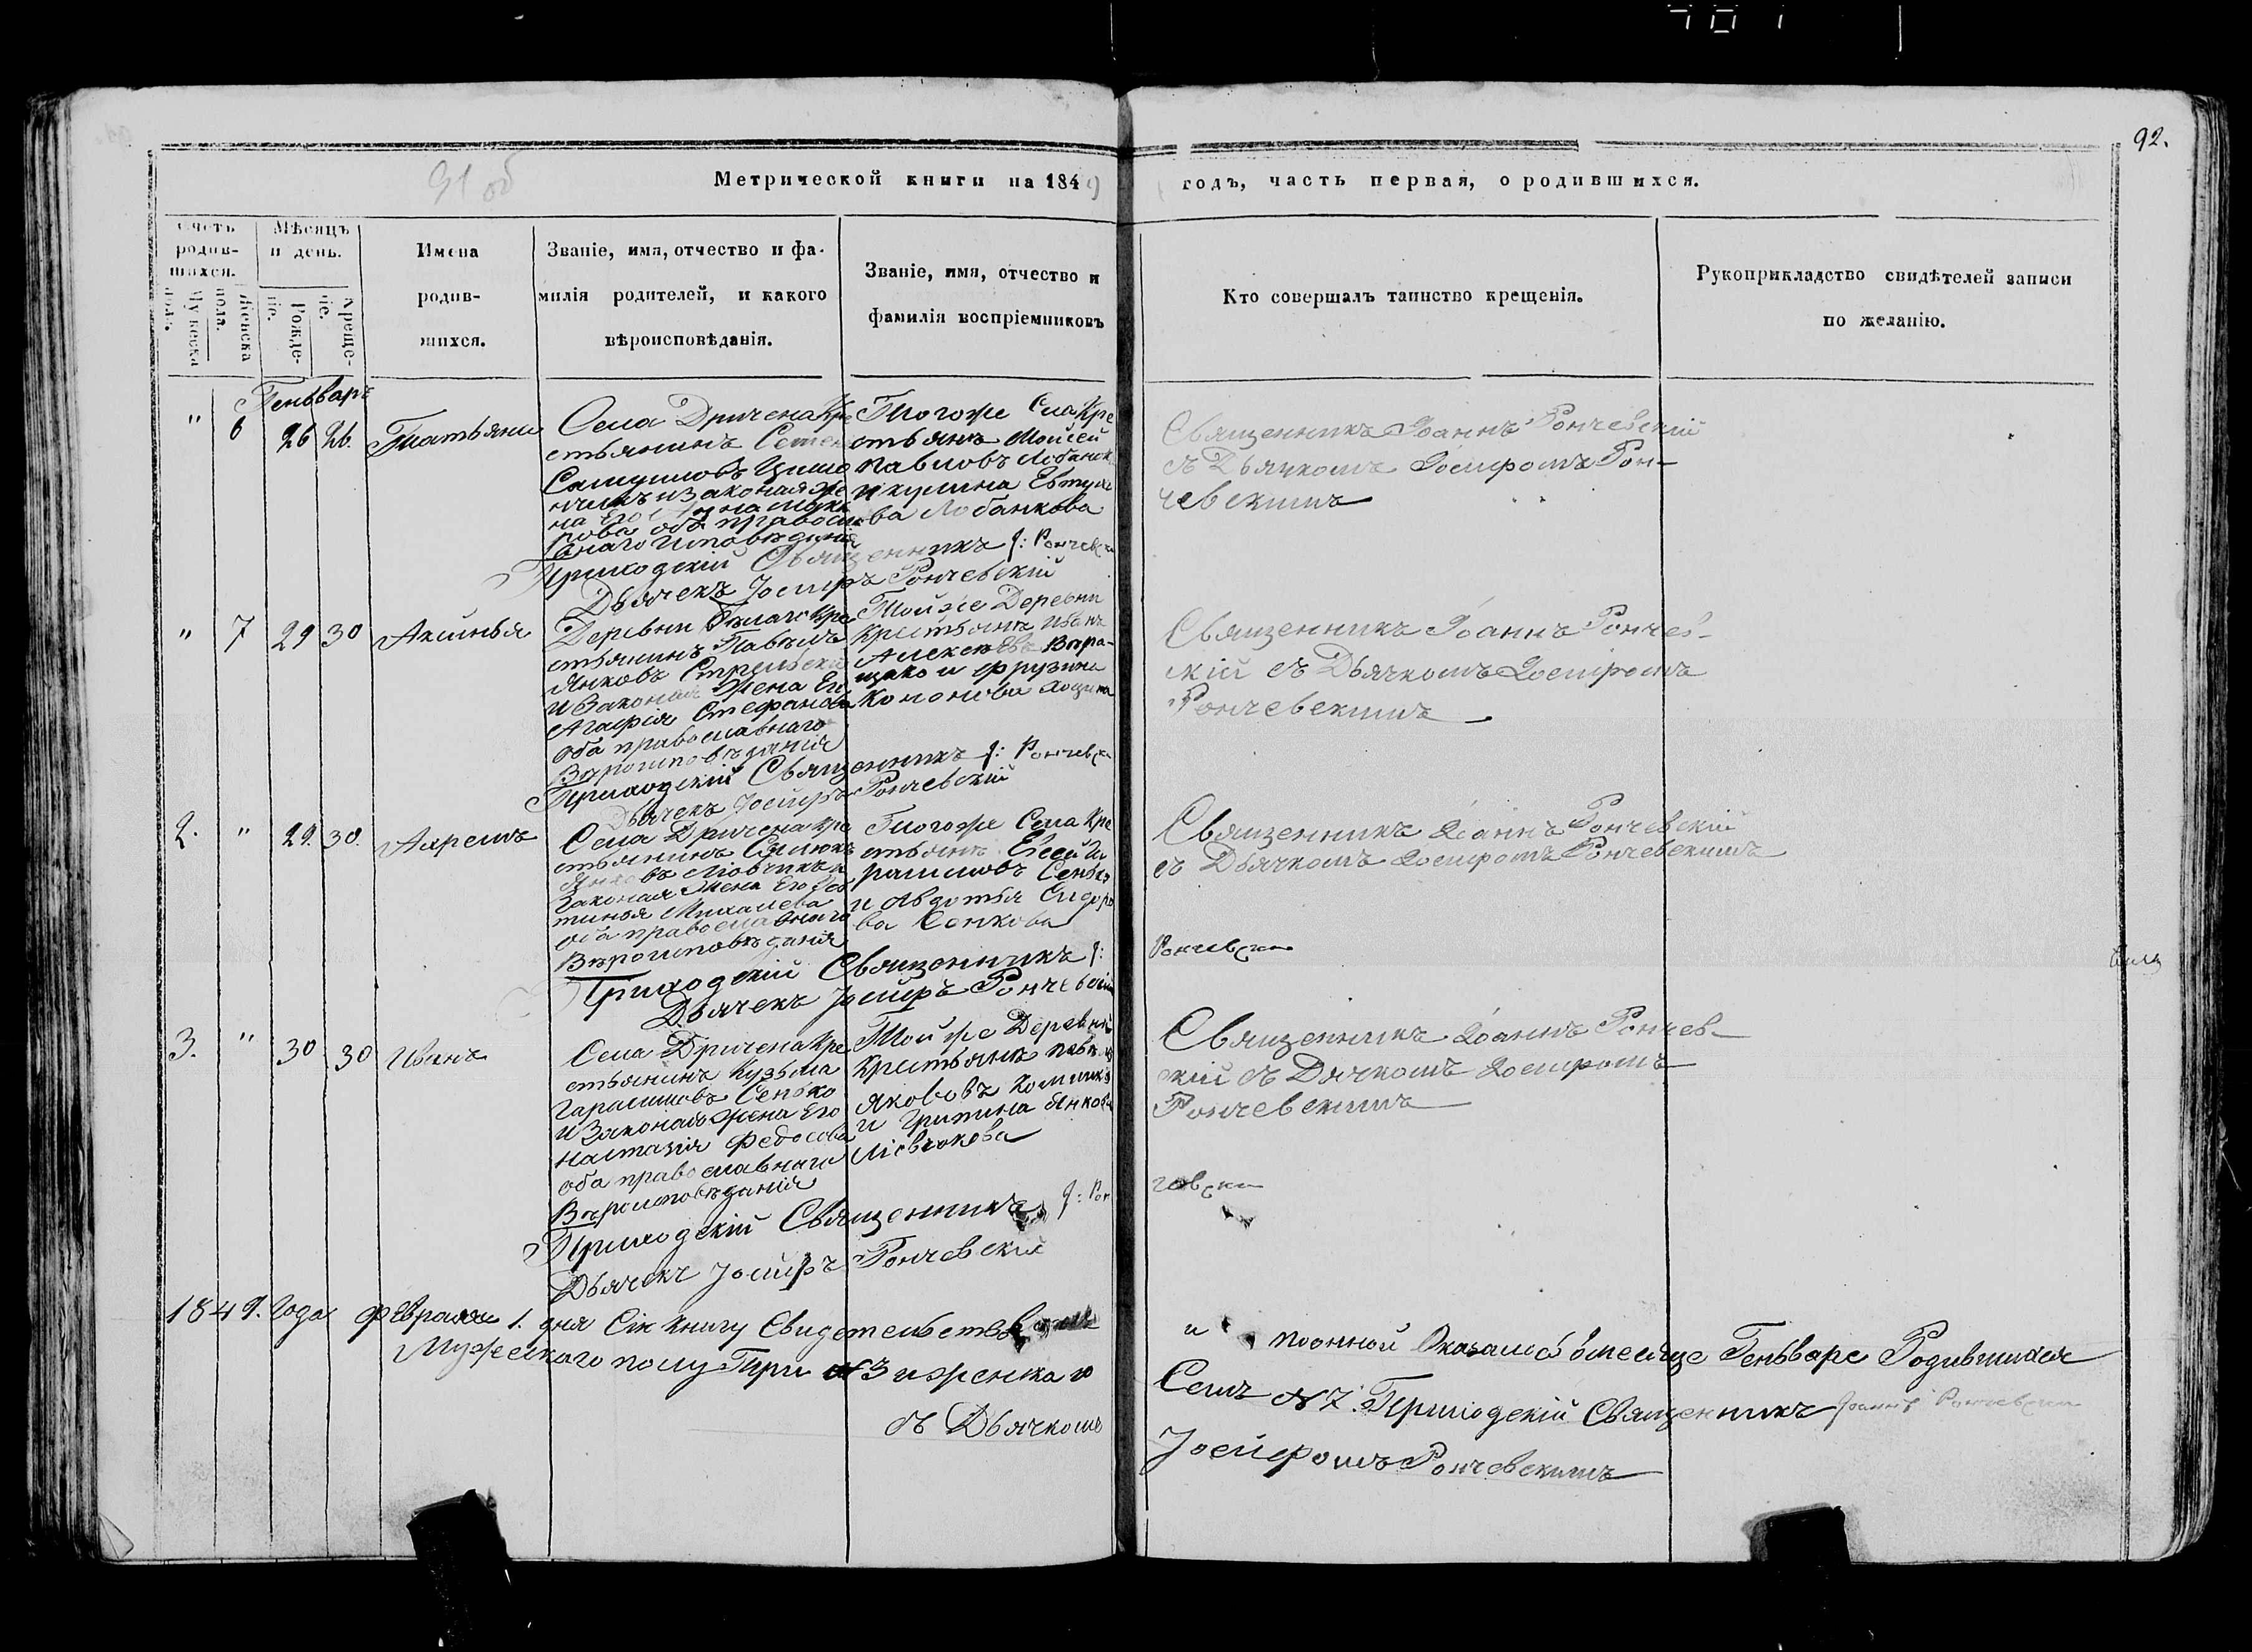 92.
91 об
Метрической книги на 1849 годъ, часть первая, о родившихся.
Счетъ родив-шихся.
Мужеска пола.
Женска пола.
Мѣсяцъ и день.
Рожде-ніе.
Креще-ніе.
Имена
родив-
шихся.
Званіе, имя, отчество и фа-
милія родителей, и какого
вѣроисповѣданія.
Званіе, имя, отчество и
фамилія воспріемниковъ
Кто совершалъ таинство крещенія.
Рукоприкладство свидѣтелей записи
по желанію.
Геньваръ
" 6 26 26. Татьяна
Села Дричена Кре
стьянинъ Семен
Самуиловъ
и законая же
на Его
рова оба правосла
внаго исповѣданія
Тогоже Села Кре
стьянъ Мойсей
Павловъ Лобанок
и кулина Евтухо
ва Лобанкова
Священникъ Іоаннъ Рончевскій
съ Дьячкомъ Іосифомъ Рон-
чевскимъ
Приходскій Священникъ І: Рончевски
Дьячекъ Іосифъ Рончевскій
" 7 29 30 Аксинья
Деревни Кре
стьянинъ Павелъ
Янковъ
и Законая Жена Его
Агафія Стефанова
оба православнаго
Вѣроисповѣданія
Той же Деревни
Крестьянъ Иванъ
Алексѣевъ Вара-
щако и Фрузина
Кононова
Священникъ Іоаннъ Рончев-
скій съ Дьячкомъ Іосифомъ
Рончевскимъ
Приходскій Священникъ І: Рончевски
Дьячекъ Іосифъ Рончевскій
2. " 29. 30. Ахремъ
Села Дричена Кре
стьянинъ
Янковъ
Законая Жена Его
Михалева
оба православнаго
Вѣроисповѣданія
Тогоже Села Кре
стьянъ Евсей Га
расимовъ Сенько
и Авдотья Сидоро
ва Сенкова
Священникъ Іоаннъ Рончевскій
съ Дьячкомъ Іосифомъ Рончевскимъ
Приходскій Священникъ І: Рончевски
Дьячекъ Іосифъ Рончевскій
3. " 30 30 Иванъ
Села Дричена Кре
стьянинъ Кузьма
Гарасимовъ Сенько
и Законая Жена Его
Настазія Федосова
оба православнаго
Вѣроисповѣданія
Той же Деревни
Крестьянъ Павелъ
Якововъ
и Гритина Янкова
Священникъ Іоаннъ Рончев-
скій съ Дячкомъ Іосифомъ
Рончевскимъ
Приходскій Священникъ І: Рончевски
Дьячекъ Іосифъ Рончевскій
1849. Года Февраля 1. дня Сію Книгу Свидетельствовалъ и поонной Оказалось вмесяце Геньваре Родившихся
Мужескаго полу Три №3 и женскаго Семъ №7. Приходскій Священникъ Іоаннъ Рончевски
съ Дьячкомъ Іосифомъ Рончевскимъ